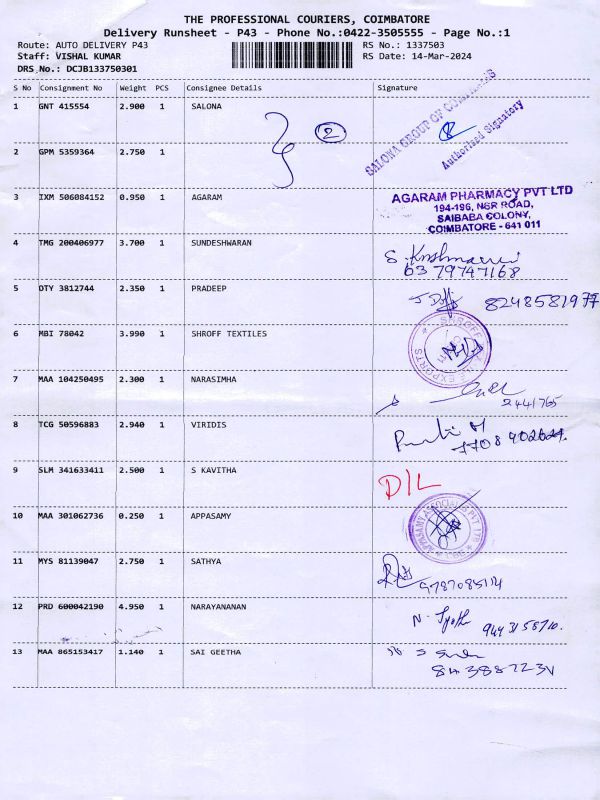 THE PROFESSIONAL COURIERS, COIMBATORE
Delivery Runsheet - P43 - Phone No.:0422-3505555 - Page No.:1
Route: AUTO DELIVERY P43 RS No.: 1337503
Staff: VISHAL KUMAR RS Date: 14-Mar-2024
DRS No.: DCJB133750301
S No Consignment No Weight PCS Consignee Details Signature
1 GNT 415554 2.900 1 SALONA
2
SALONA GROUP OF
Authorised Signatory
2 GPM 5359364 2.750 1
3 IXM 506084152 0.950 1 AGARAM
AGARAM PHARMACY PVT LTD
194-196, NSR ROAD,
SAIBABA COLONY,
COIMBATORE - 641 011
4 TMG 200406977 3.700 1 SUNDESHWARAN
63 79747168
5 DTY 3812744 2.350 1 PRADEEP
8248581977
6 MBI 78042 3.990 1 SHROFF TEXTILES
7 MAA 104250495 2.300 1 NARASIMHA
8 TCG 50596883 2.940 1 VIRIDIS
9 SLM 341633411 2.500 1 S KAVITHA
D/L
10 MAA 301062736 0.250 1 APPASAMY
APPASAMY ASSOCIATES PVT LTD
11 MYS 81139047 2.750 1 SATHYA
12 PRD 600042190 4.950 1 NARAYANANAN
13 MAA 865153417 1.140 1 SAI GEETHA